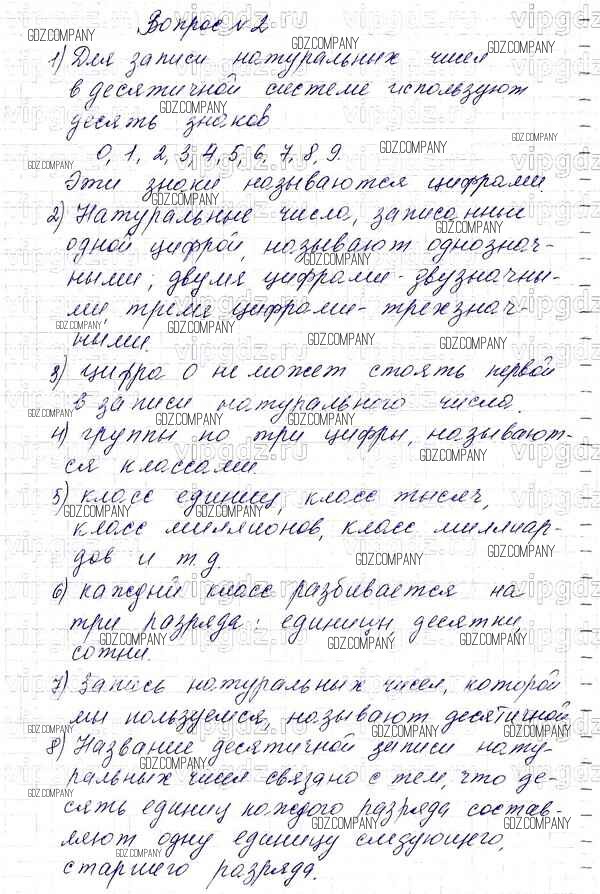 Вопрос №2
1) Для записи натуральных чисел
в десятичной системе используют
десять знаков
0, 1, 2, 3, 4, 5, 6, 7, 8, 9.
Эти знаки называются цифрами.
2) Натуральные числа, записанные
одной цифрой, называют однознач-
ными; двумя цифрами - двузначны-
ми, тремя цифрами - трехзнач-
ными.
3) цифра 0 не может стоять первой
в записи натурального числа.
4) группы по три цифры, называют-
ся классами.
5) класс единиц, класс тысяч,
класс миллионов, класс миллиар-
дов и т.д.
6) каждый класс разбивается на
три разряда: единицы, десятки,
сотни.
7) Запись натуральных чисел, которой
мы пользуемся, называют десятичной
8) Название десятичной записи нату-
ральных чисел связано с тем, что де-
сять единиц каждого разряда состав-
ляют одну единицу следующего,
старшего разряда.
GDZ.COMPANY
vipgdz.ru